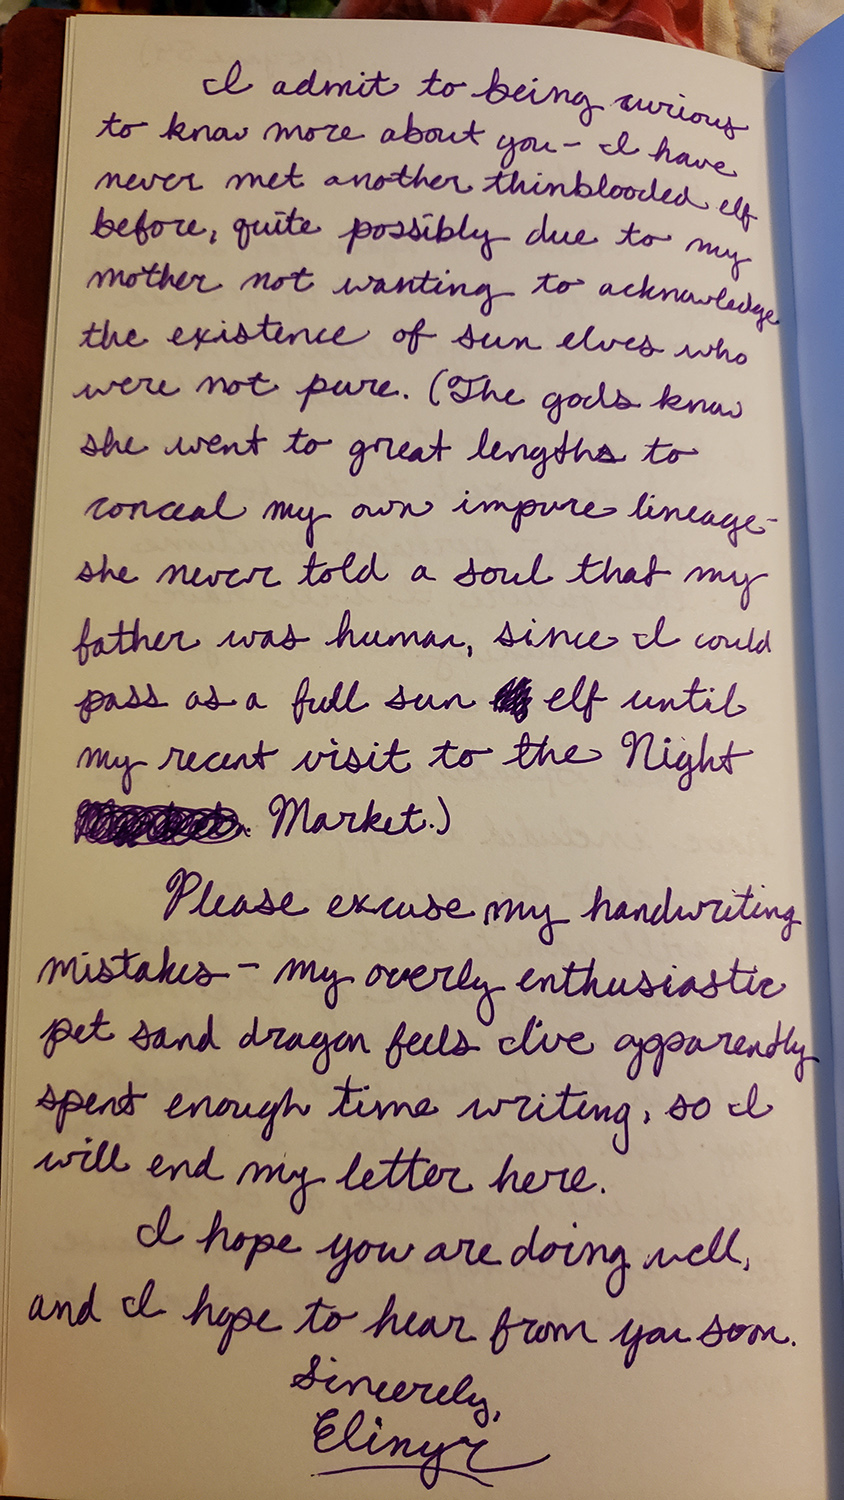 I admit to being curious
to know more about you - I have
never met another thinblooded elf
before, quite possibly due to my
mother not wanting to acknowledge
the existence of sun elves who
were not pure. (The gods know
she went to great lengths to
conceal my own impure lineage -
she never told a soul that my
father was human, since I could
pass as a full sun elf until
my recent visit to the Night
Market.)
Please excuse my handwriting
mistakes - my overly enthusiastic
pet sand dragon feels I've apparently
spent enough time writing, so I
will end my letter here.
I hope you are doing well,
and I hope to hear from you soon.
Sincerely,
Elinyr